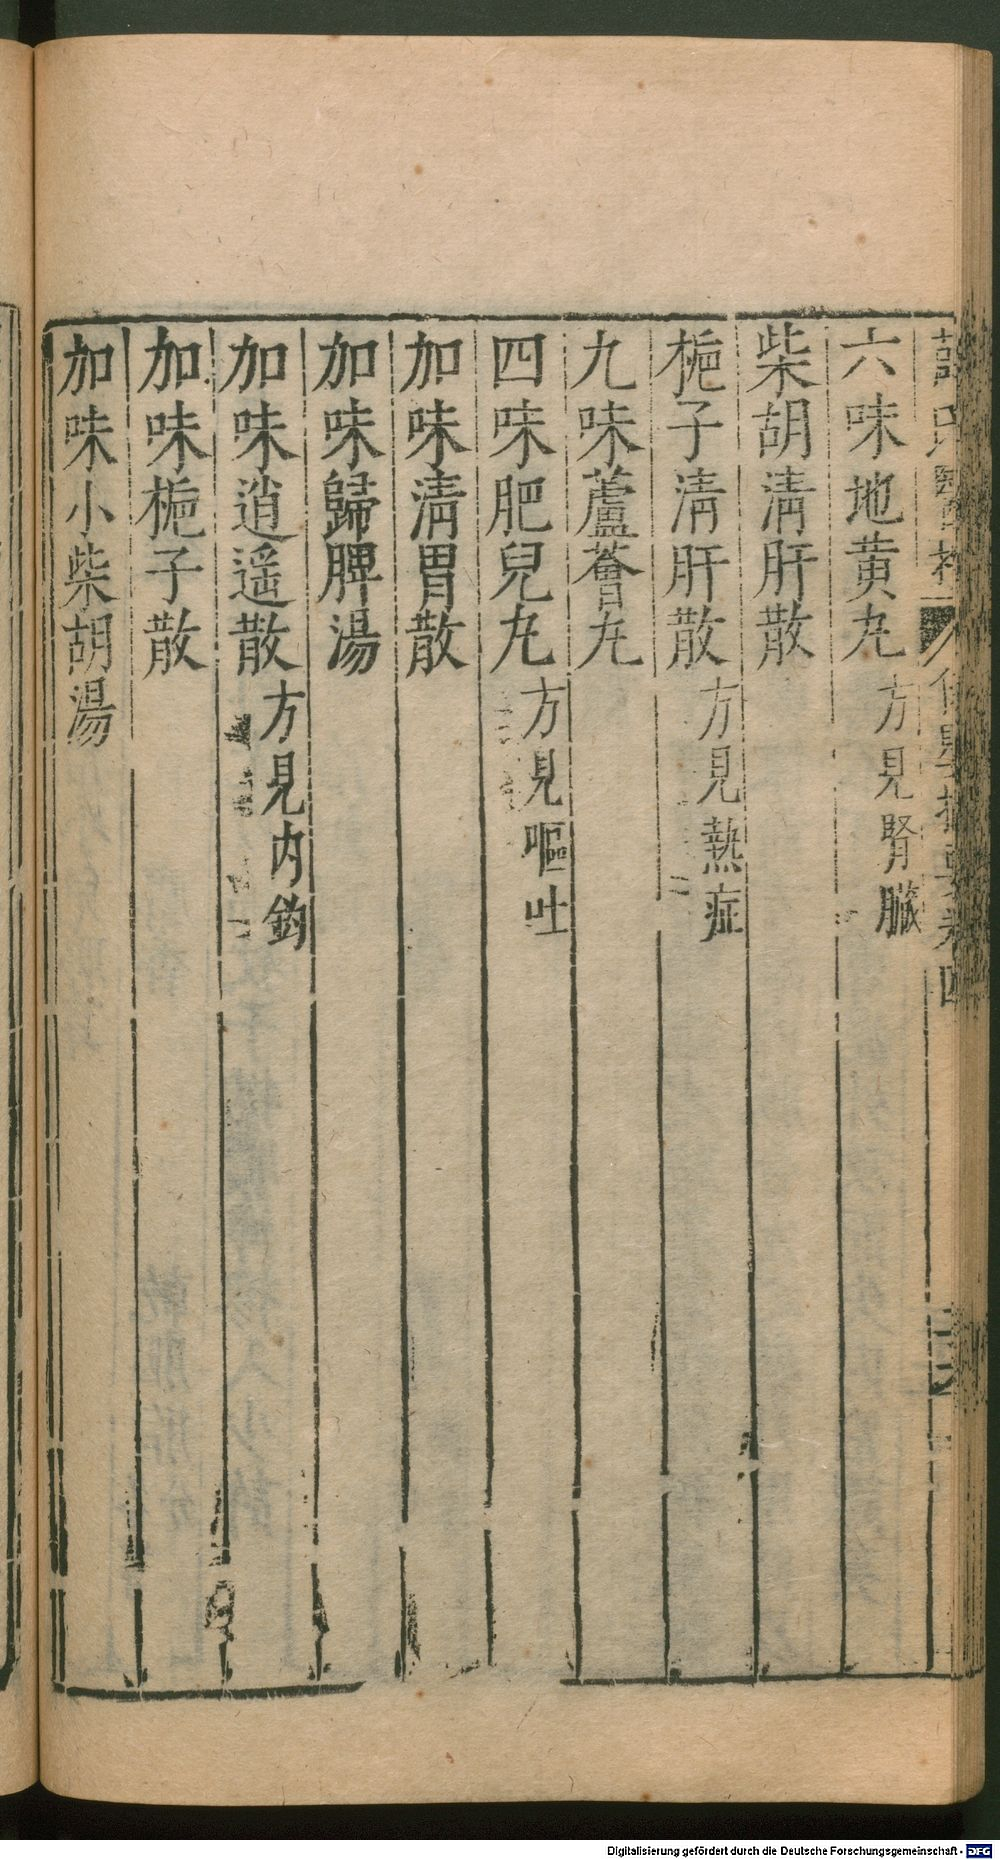 薛氏醫
保嬰撮要卷四
六味地黃丸 方見腎臟
柴胡清肝散
梔子清肝散 方見熱症
九味蘆薈丸
四味肥兒丸 方見嘔吐
加味清胃散
加味歸脾湯
加味逍遥散 方見内鈎
加味梔子散
加味小柴胡湯
Digitalisierung gefördert durch die Deutsche Forschungsgemeinschaft - DFG